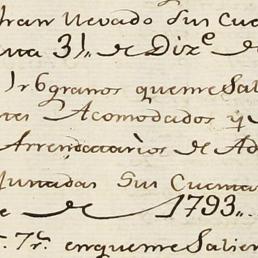 hran llevado sus Cue
nta 31,, de Diz.e de
1 r 6 granos quenre Sal
tes Acomodados y
Arrendatarios de Ad
Juntadas sus Cuenta
e de 1793,,
. 7 r.s enquenre Salien